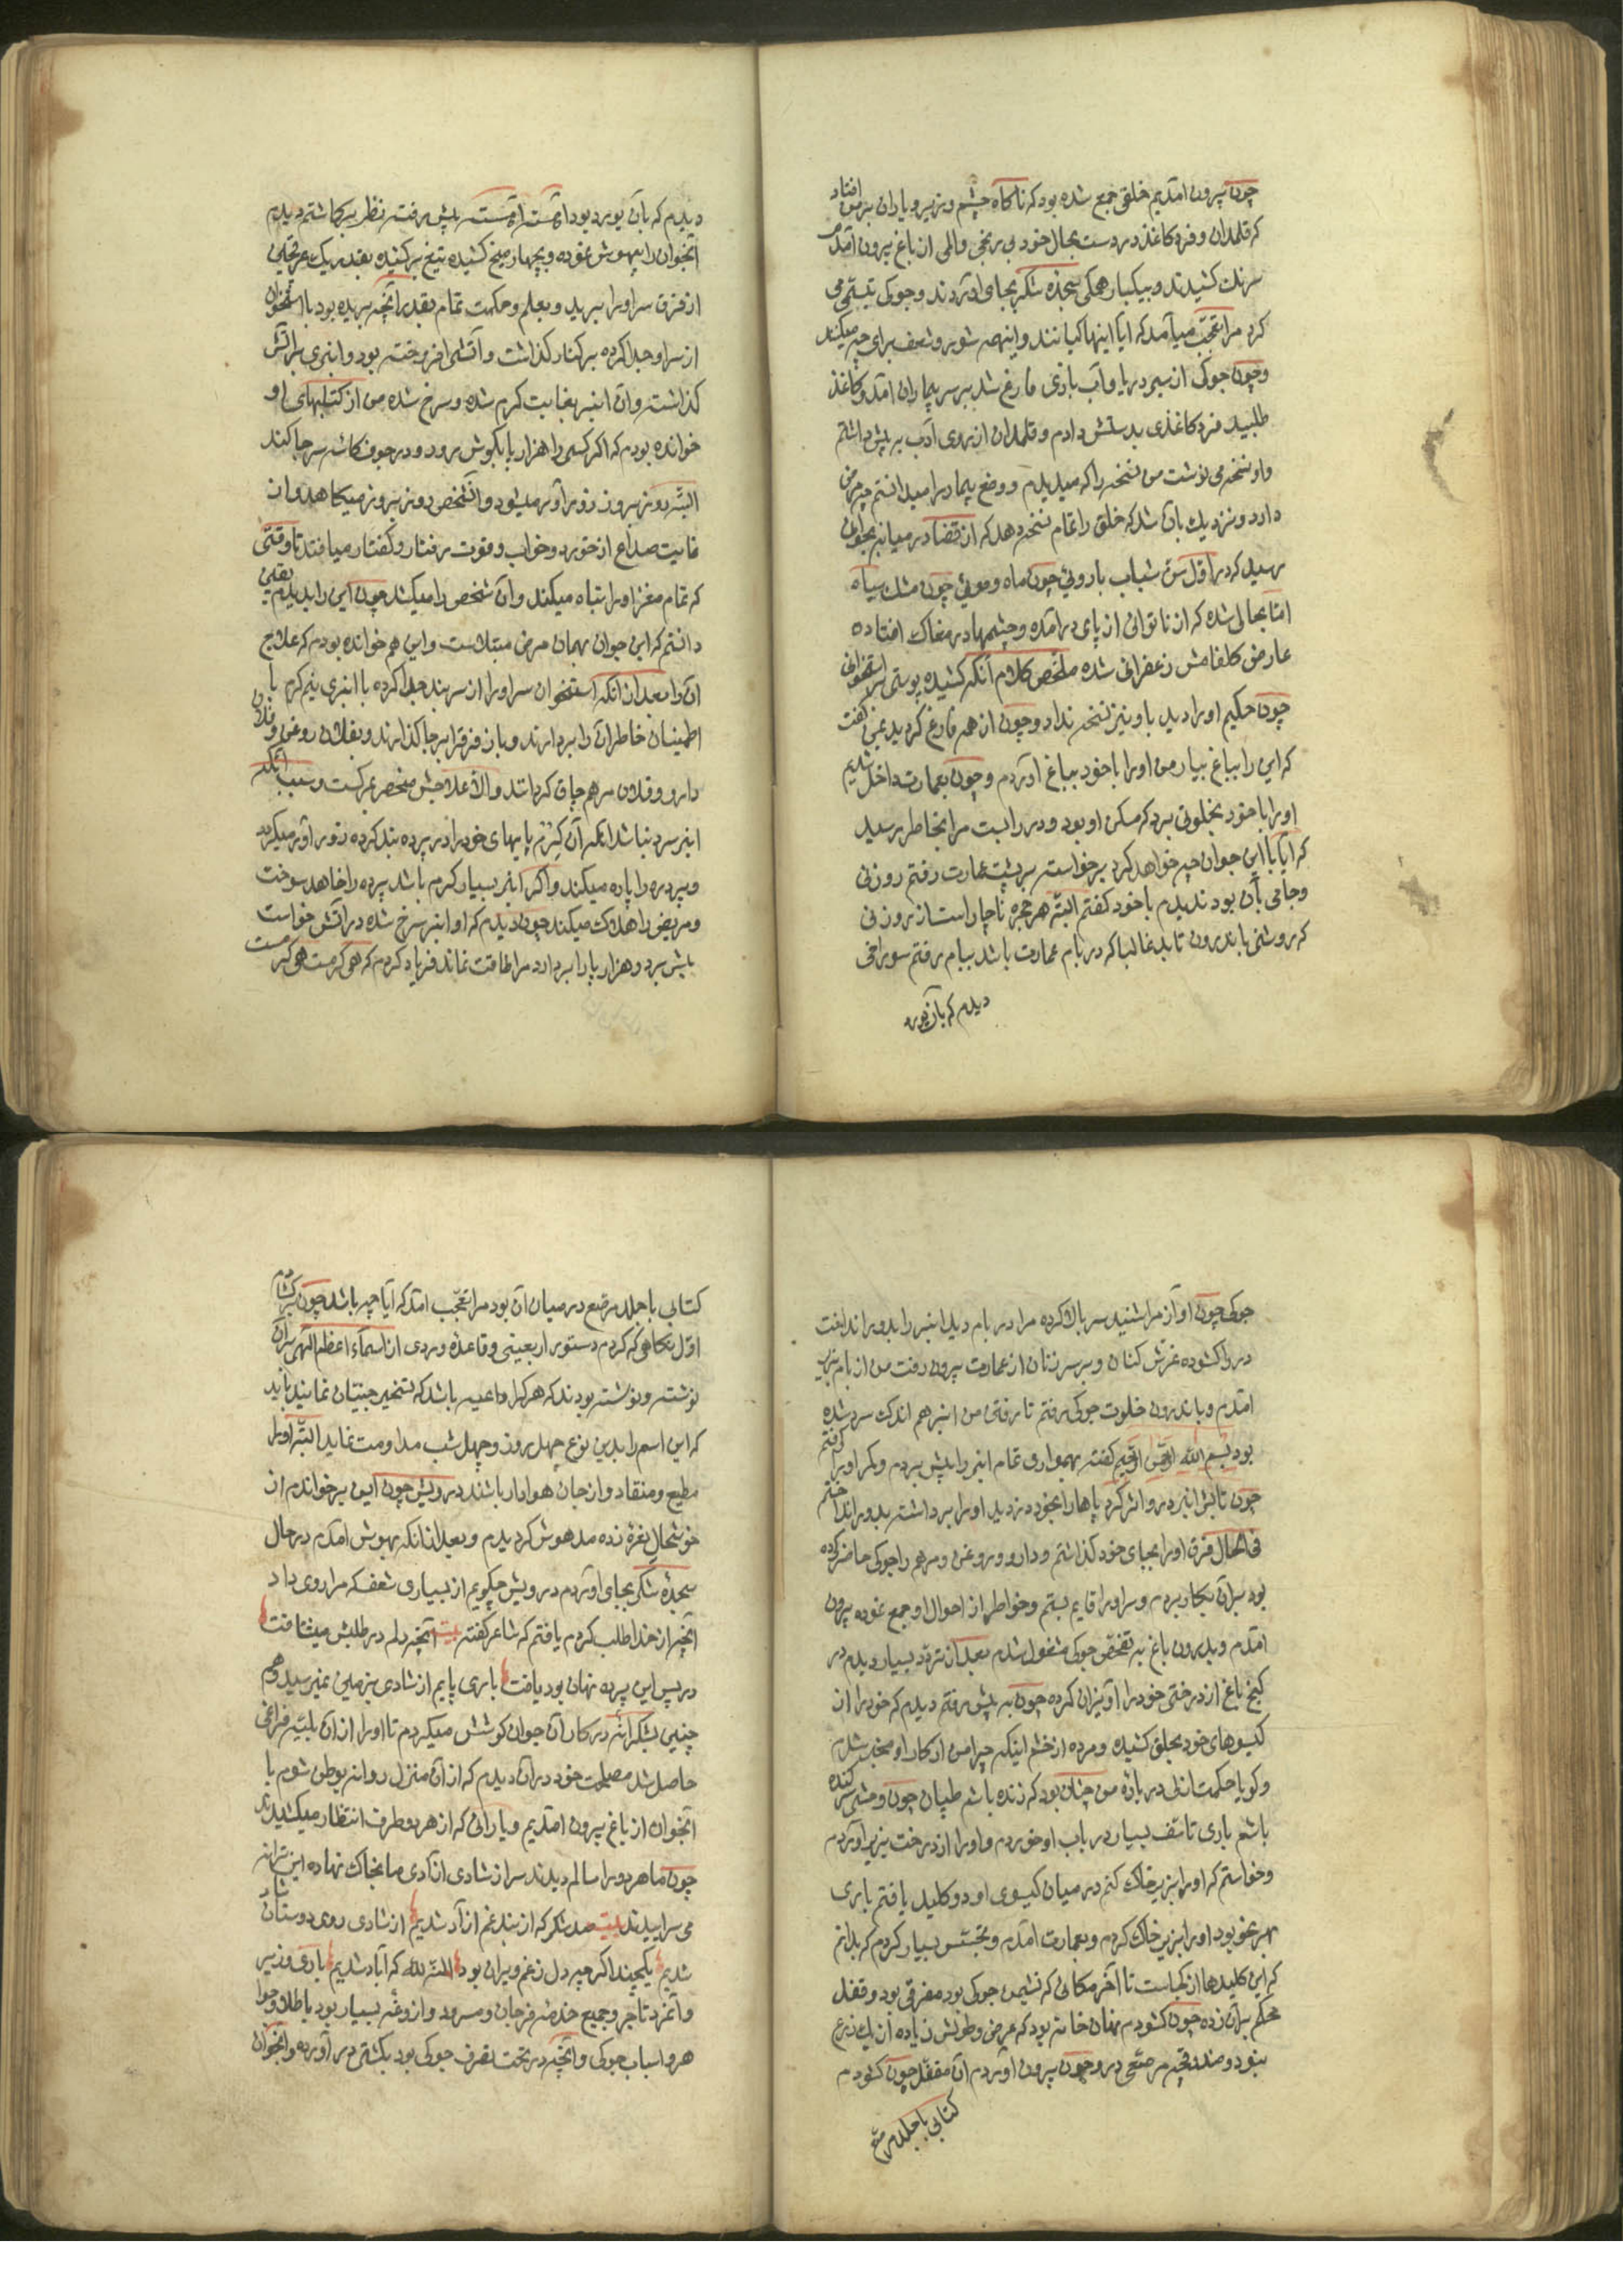 چون بیرون امدیم خلقی جمع شده بود که ناکاه چشم وزیر و یاران بر من افتاد
که قلمدان و فرد کاغذ در دست بحال خود بی رنجی و المی از باغ بیرون امدم
سرنک کشیدند و بیکبار همکی سجدهٔ شکر بجای اوردند و جوکی تبسّمی می
کرد مرا تعجّب میآمد که ایا اینها کیانند و اینهمه شور و شعف برای چه میکنند
و چون جوکی از سیر دریا و آب بازی فارغ شد بر سر بیماران امد و کاغذ
طلبید فرد کاغذی بدستش دادم و قلمدان از روی ادب بر پیش داشتم
و او نسخه می نوشت من نسخه را که میدیدم و وضع بیمار را میدانستم چه مرض
دارد و نزدیک بآن شد که خلق را تمام نسخه دهد که از قضا در میانه بجوانی
رسید که در اوّل سنّ شباب با روئی چون ماه و موئی چون مشک سیاه
امّا بحالی شده که از ناتوانی از پای درآمده و چشمها در مغاک افتاده
عارض کلفامش زعفرانی شده ملخّص کلام آنکه کشیده پوستی بر استخوانی
چون حکیم او را دید باو نیز نسخه نداد و چون از همه فارغ کردید بمن کفت
که این را بباغ بیار من اورا با خود بباغ اوردم و چون بعمارت داخل شدیم
اورا با خود بخلوتی برد که مسکن او بود و در را بست مرا بخاطر رسید
که ایا با این جوان چه خواهد کرد برخواسته بر پشت عمارت رفتم روزنی
و جامی بآن بود ندیدم با خود کفتم البتّه هر حجره ناچار است از روزنی
که روشنی باندرون تابد غالبا که در بام عمارت باشد ببام رفتم سوراخی
دیدم که بآن بود
دیدم که بآن بود برد بود آهسته آهسته پیش رفته نظر بر کماشتم دیدم
آنجوان را بیهوش نموده و بچهار میخ کشیده تیغ برکشیده بقدر یک عرقچین
از فرق سر اورا برید و بعلم و حکمت تمام بقدر آنچه بریده بود با استخوان
از سر او جدا کرده بر کنار کذاشت و آتشی افروخته بود و انبری بر آتش
کذاشته و آن انبر بغایت کرم شده و سرخ شده من از کتابهای او
خوانده بودم که اکر کسی را هزار پا بکوش رود و در جوف کاسه سر جا کند
البتّه روز بروز زورآور میشود و آنشخص روز بروز میکاهد و از
غایت صداع از خورد و خواب و قوت رفتار و کفتار میافتد تا وقتی
که تمام مغز اورا تباه میکند و آن شخص را میکشد چون این را بدیدم یقین
دانستم که این جوان بهمان مرض مبتلاست و این هم خوانده بودم که علاج
آن را بعد از آنکه استخوان سر اورا از سر بند جدا کرده با انبری نیم کرم با
اطمینان خاطر آن را بردارند و باز فرق را بر جا کذارند و بفلان روغن و فلان
دارو و فلان مرهم چاق کردانند والّا علاجش منحصر بمرکست و سبب آنکه
انبر سرد نباشد آنکه آن کژدم پایهای خود را در پرده بند کرده زور آور میکردد
و پرده را پاره میکند و اکر انبر بسیار کرم باشد پرده را خاهد سوخت
و مریض را هلاک میکند چون دیدم که او انبر سرخ شده در آتش خواست
پیش برد و هزار پا را بردارد مرا طاقت نماند فریاد کردم که هی کرمست هی کرمست
جوکی چون اواز مرا شنید سر بالا کرده مرا در بام دید انبر را بدور انداخت
در را کشوده غرّش کنان و بر سر زنان از عمارت بیرون رفت من از بام بزیر
امدم و باندرون خلوت جوکی رفتم تا رفتن من انبر هم اندک سرد شده
بود بسم الله الرحمن الرحیم کفته بهمواری تمام انبر را پیش بردم و کمر او را کرفتم
چون تابش انبر در و اثر کرد پاها را بخود دزدید اورا برداشته بدور انداختم
فی الحال فرق اورا بجای خود کذاشتم و دارو و روغن و مرهم را جوکی حاضر کرده
بود بر آن بکار بردم و سر اورا قایم بستم و خواطر از احوال او جمع نموده بیرون
امدم و بدرون باغ به تفحّص جوکی مشغول شدم بعد از تردّد بسیار دیدم در
کنج باغ از درختی خود را آویزان کرده چون به پیش رفتم دیدم که خود را از
کیسوهای خود بحلق کشیده و مرده از خشم اینکه چرا من از کار او مخبر شدم
و کویا حکمت ازلی درباره من چنان بود که زنده باشم
باشم باری تاسّف بسیار در باب او خوردم و اورا از درخت بزیر اوردم
و خواستم که اورا بزیر خاک کنم در میان کیسوی او دو کلید یافتم باری
بهر نحو بود اورا بزیر خاک کردم و بعمارت امدم و تجسّس بسیار کردم که بدانم
که این کلیدها از کجاست تا آخر مکانی که نشیمن جوکی بود مفرقی بود و قفل
محکم بر آن زده چون کشودم نهان خانه بود که عرض و طولش زیاده از یک ذرع
نبود و صندقچه مرصّع در و چون بیرون اوردم آن مقفّل چون کشودم
کتابی با جلد مرصّع
کتابی با جلد مرصّع در میان آن بود مرا تعجّب امد که ایا چه باشد چون برکشادم
اوّل نکاهی که کردم دستور اربعینی و قاعدهٔ وردی از اسماء اعظم الهی بر آن
نوشته و نوشته بودند که هر کرا داعیه باشد که تسخیر جنیّان نمایند باید
که این اسم را بدین نوع چهل روز و چهل شب مداومت نماید البتّه اورا
مطیع و منقاد و از جان هوادار باشند درویش چون این برخواندم از
خوشحالی نعره زده مدهوش کردیدم و بعد از آنکه بهوش امدم در حال
سجدهٔ شکر بجای اوردم درویش چکویم از بسیاری شعف که مرا روی داد
آنچه از خدا طلب کردم یافتم که شاعر کفته بیت آنچه دلم در طلبش میشتافت
در پس این پرده نهان بود یافت باری پایم از شادی بزمین نمیرسید و هم
چنین بشکرانه در کار آن جوان کوشش میکردم تا اورا از آن بلیّه فراغی
حاصل شد مصلحت خود در آن دیدم که از آن منزل روانه بوطن شوم با
آنجوان از باغ بیرون امدیم و یارانی که از هر دو طرف انتظار میکشیدند
چون ما هر دو را سالم دیدند سر از شادی آزادی ما بخاک نهاده این ترانه
می سراییدند بیت صد شکر که از بند غم آزاد شدیم از شادی روی دوستان شاد
شدیم یکچند اکر چه دل ز غم ویران بود المنّة لله که آباد شدیم باری وزیر
و آنمرد تاجر و جمیع خدمه فرجان و مسرور و از وغه بسیار بود با طلا و جوا
هر و اسباب جوکی و آنچه در تحت تصرف جوکی بود بکشتی در آورده و آنجوان